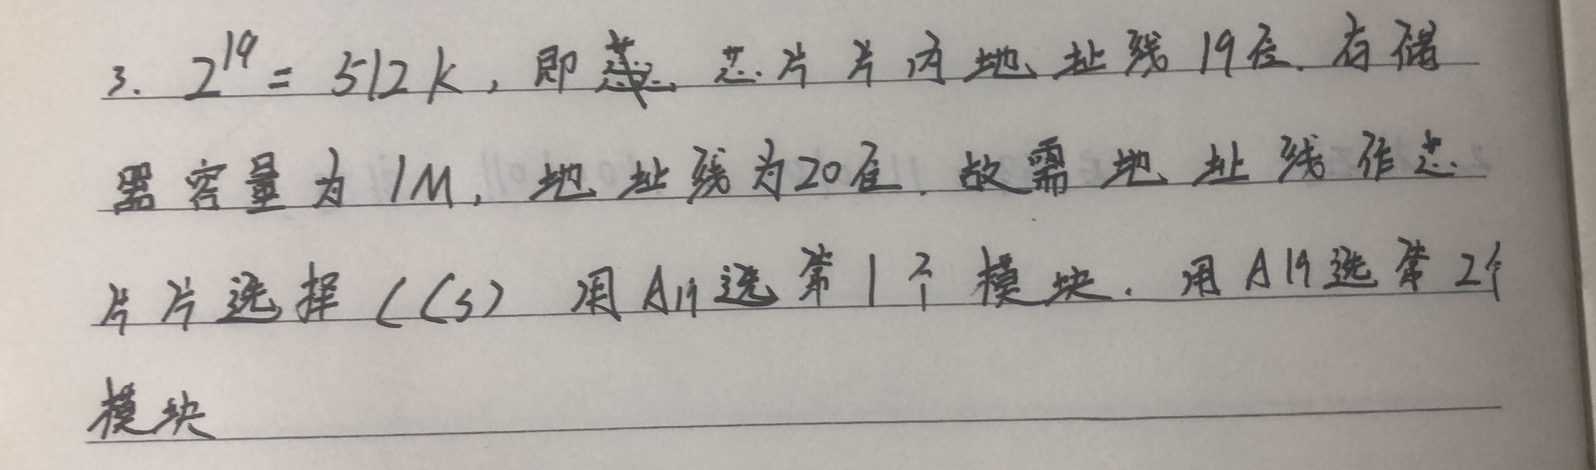 3. 2¹⁹ = 512K, 即 芯片片内地址线19位. 存储
器容量为1M, 地址线为20位. 故需地址线作芯
片片选择 (CS) 用A19选第1个模块. 用A19选第2个
模块